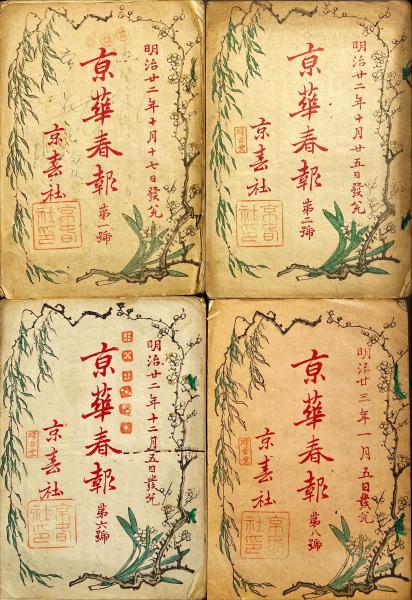 明治廿二年十月十七日發兌
京華春報
第一號
京春社
明治廿二年十月廿五日發兌
京華春報
第二號
京春社
明治廿二年十二月五日發兌
京華春報
第六號
京春社
明治廿三年一月五日發兌
京華春報
第八號
京春社